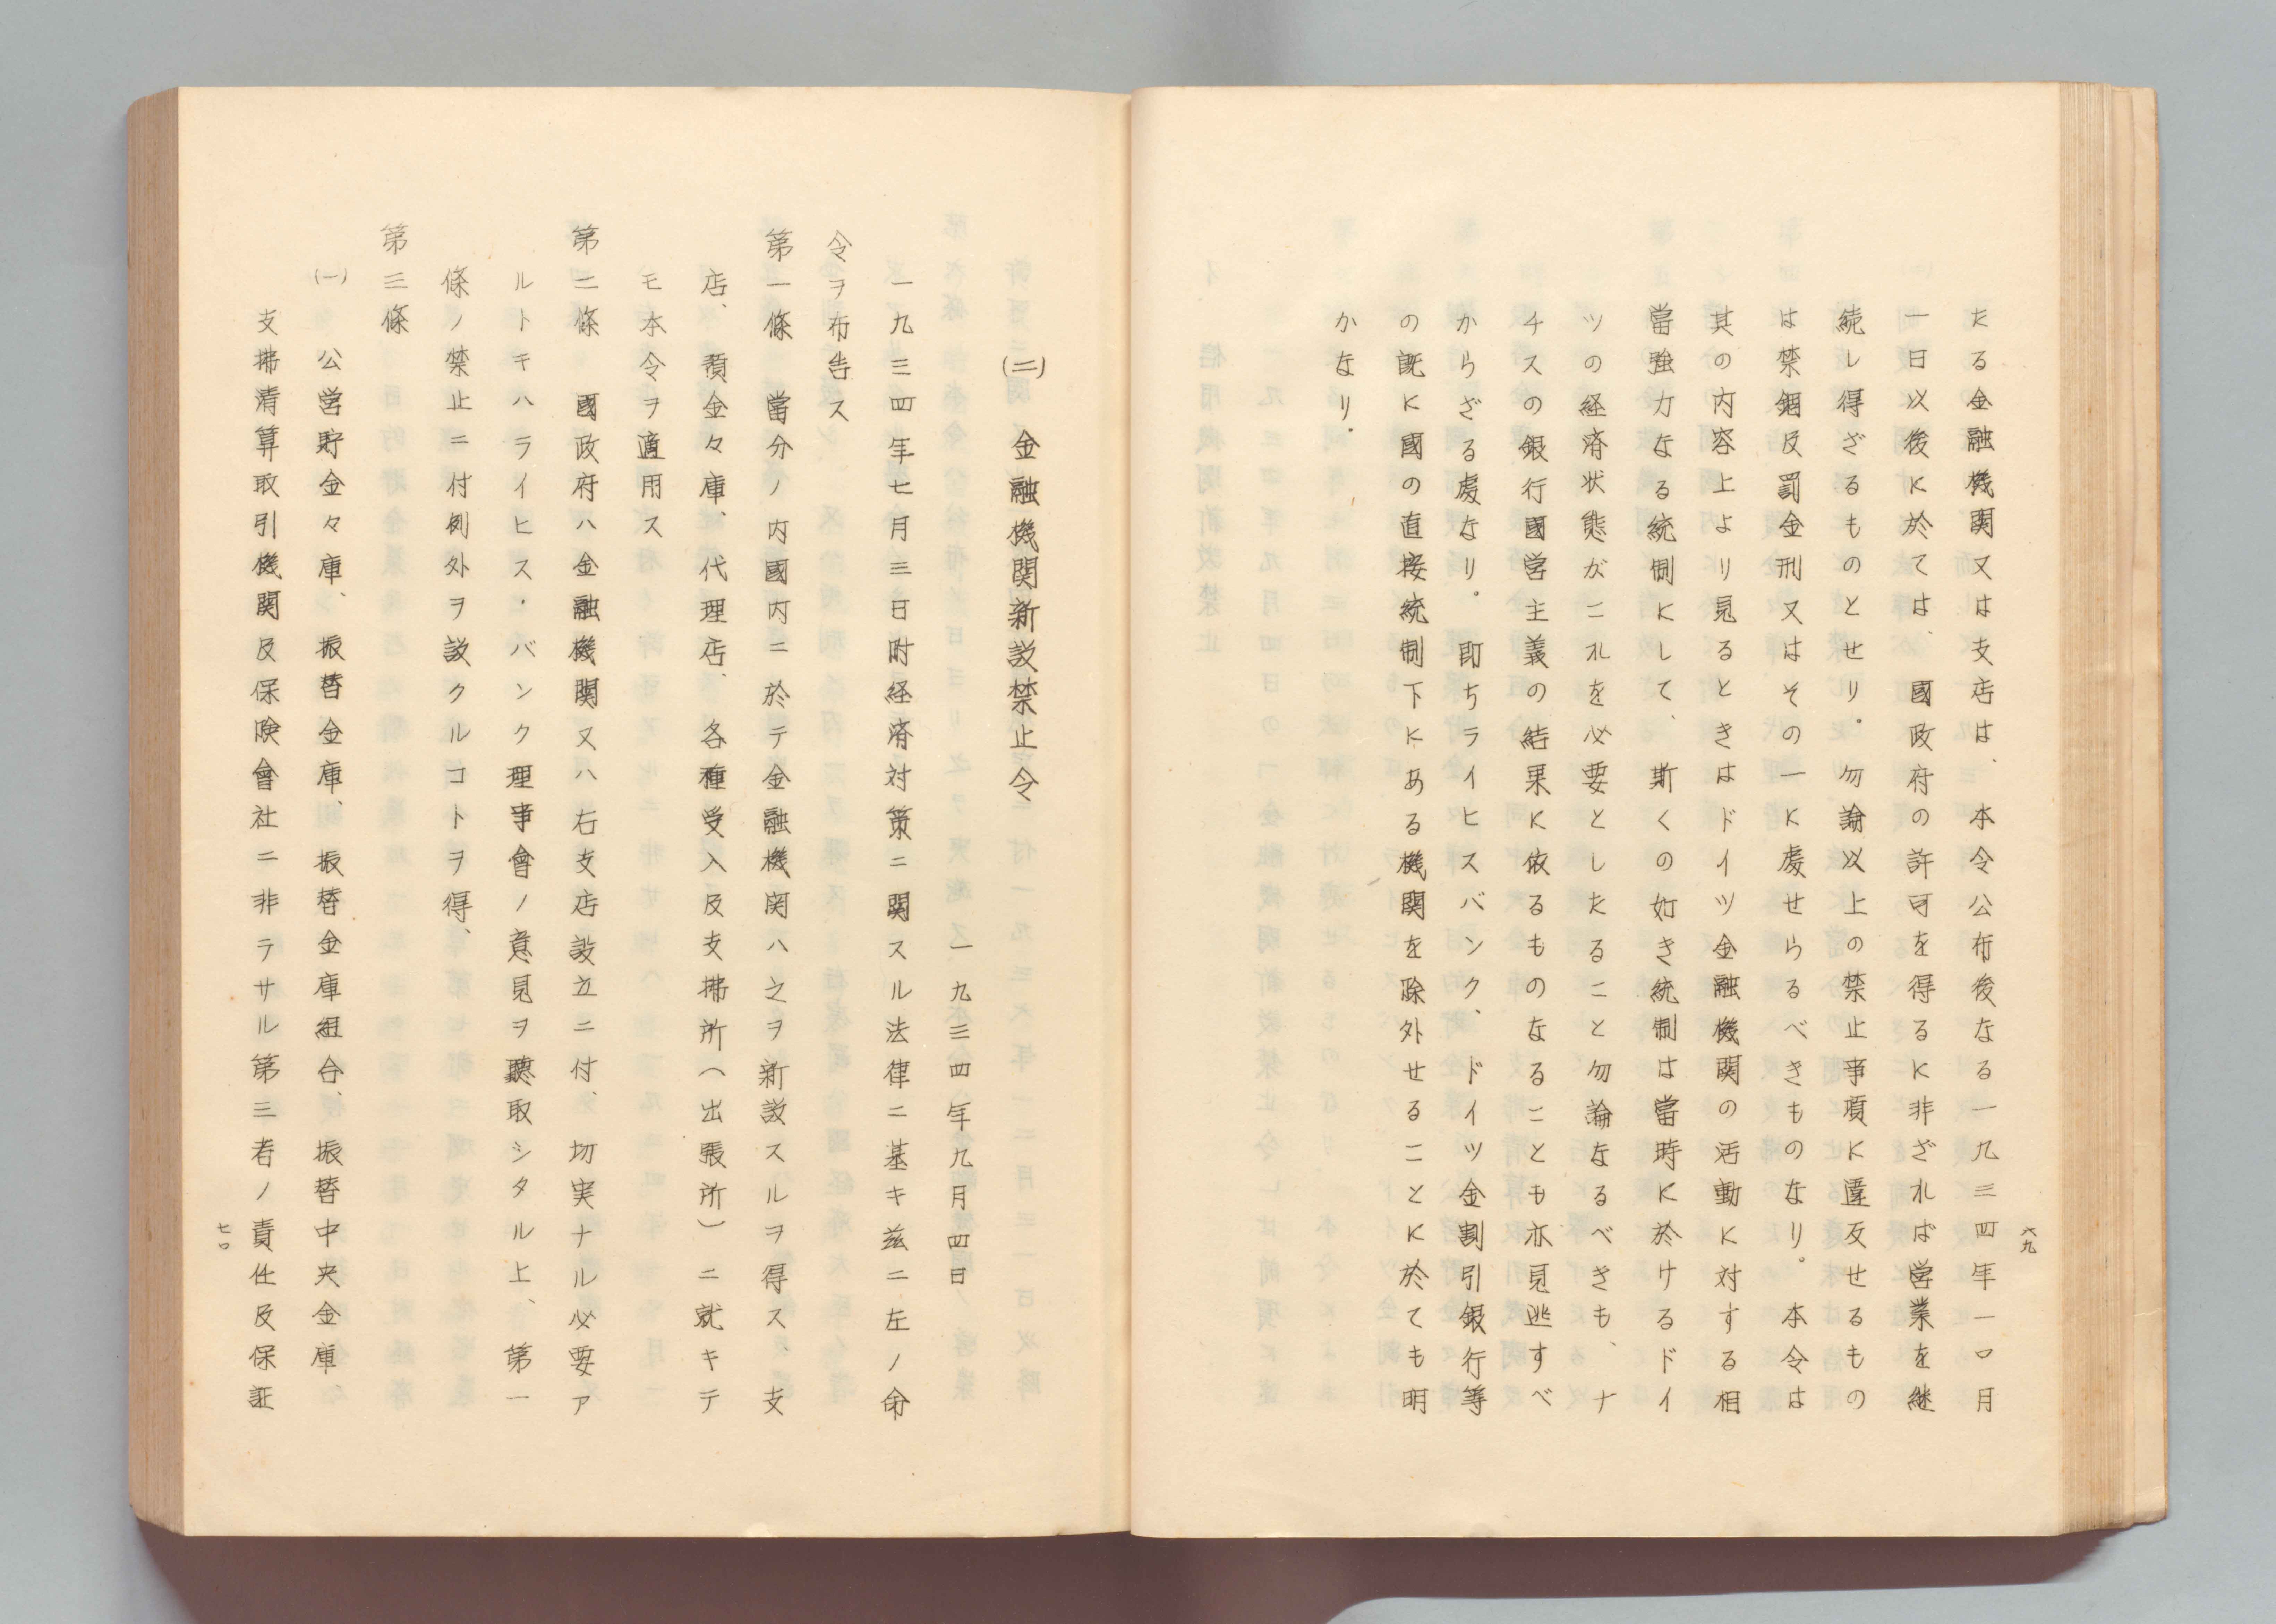 たる金融機関又は支店は、本令公布後なる一九三四年一〇月
一日以後に於ては、國政府の許可を得るに非ざれば営業を継
続し得ざるものとせり。勿論以上の禁止事項に違反せるもの
は禁錮及罰金刑又はその一に處せらるべきものなり。本令は
其の内容上より見るときはドイツ金融機関の活動に対する相
當強力なる統制にして、斯くの如き統制は當時に於けるドイ
ツの経済状態がこれを必要としたること勿論なるべきも、ナ
チスの銀行國営主義の結果に依るものなることも亦見逃すべ
からざる處なり。即ちライヒスバンク、ドイツ金割引銀行等
の既に國の直接統制下にある機関を除外せることに於ても明
かなり。
六九
(二)　金融機関新設禁止令
一九三四年九月四日
一九三四年七月三日附経済対策ニ関スル法律ニ基キ茲ニ左ノ命
令ヲ布告ス
第一條　當分ノ内國内ニ於テ金融機関ハ之ヲ新設スルヲ得ス、支
店、預金々庫、代理店、各種受入及支拂所(出張所)ニ就キテ
モ本令ヲ適用ス
第二條　國政府ハ金融機関又ハ右支店設立ニ付、切実ナル必要ア
ルトキハライヒス・バンク理事會ノ意見ヲ聽取シタル上、第一
條ノ禁止ニ付例外ヲ設クルコトヲ得、
第三條
(一)　公営貯金々庫、振替金庫、振替金庫組合、振替中央金庫、
支拂清算取引機関及保険會社ニ非ラサル第三者ノ責任及保証
七〇